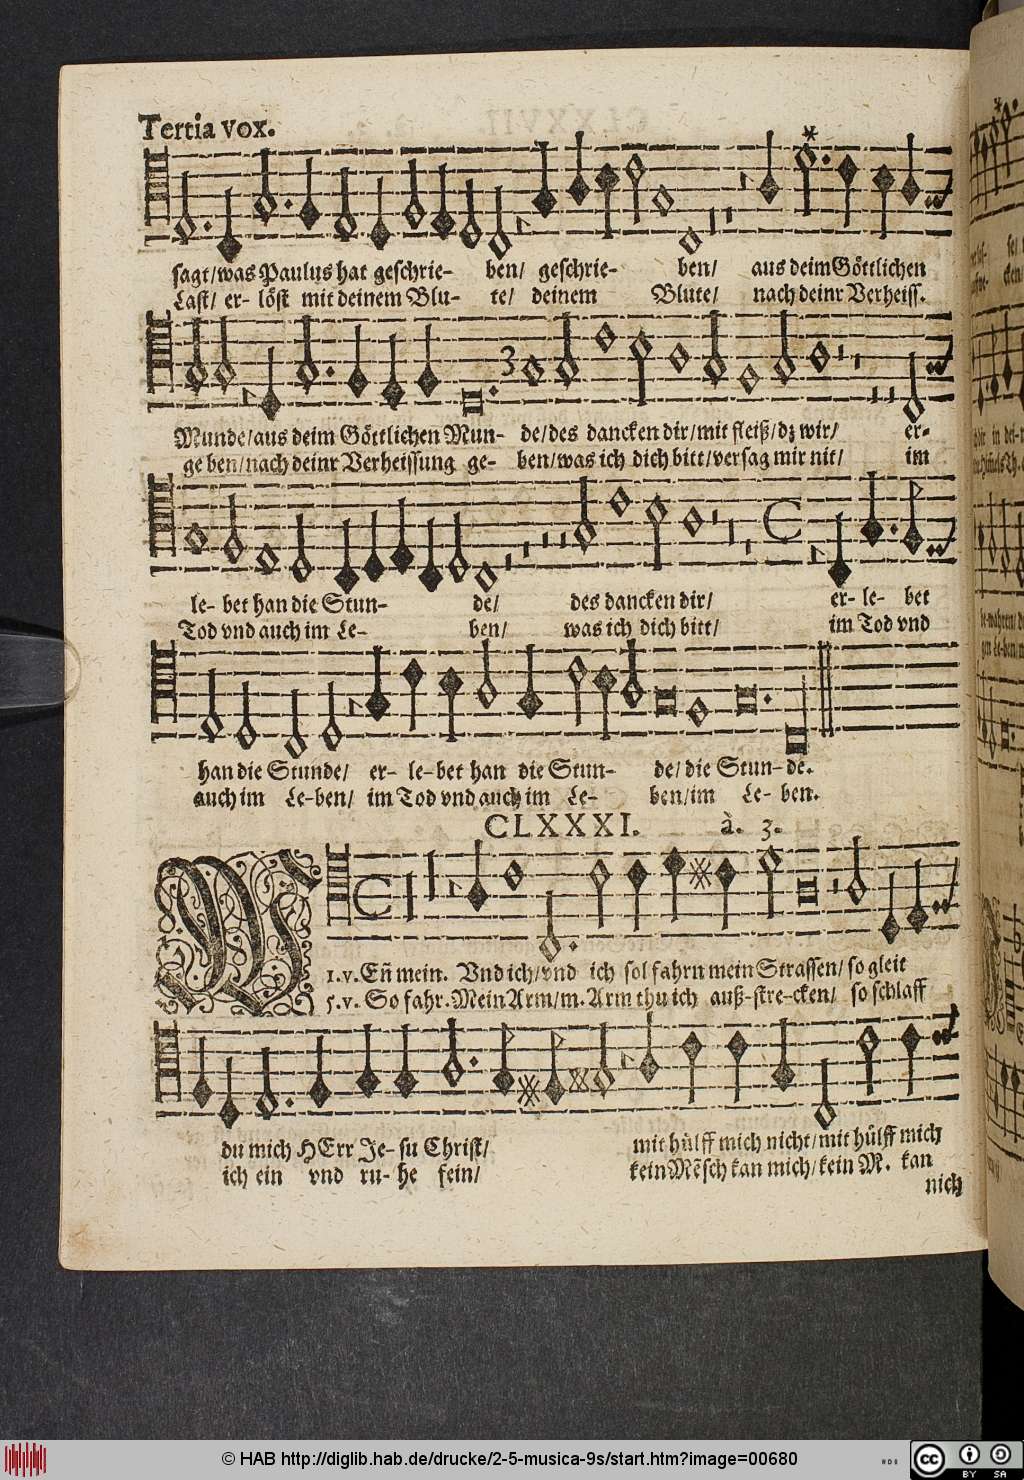 Tertia vox.
sagt/was Paulus hat geschrie- ben/ geschrie- ben/ aus deim Göttlichen
Last/ er- löst mit deinem Blu- te/ deinem Blute/ nach deinr Verheiss.
3
Munde/aus deim Göttlichen Mun- de/des dancken dir/mit fleiß/dz wir/ er-
ge ben/nach deinr Verheissung ge- ben/was ich dich bitt/versag mir nit/ im
le- bet han die Stun- de/ des dancken dir/ er- le- bet
Tod vnd auch im Le- ben/ was ich dich bitt/ im Tod vnd
han die Stunde/ er- le-bet han die Stun- de/ die Stun-de.
auch im Le-ben/ im Tod vnd auch im Le- ben/im Le- ben.
CLXXXI. à. 3.
M
1.v. Eñ mein. Vnd ich/vnd ich sol fahrn mein Strassen/ so gleit
5.v. So fahr. Mein Arm/m. Arm thu ich auß-stre-cken/ so schlaff
du mich HErr Je- su Christ/ mit hülff mich nicht/mit hülff mich
ich ein vnd ru- he fein/ kein Mẽsch kan mich/kein M. kan
nich
© HAB http://diglib.hab.de/drucke/2-5-musica-9s/start.htm?image=00680
cc BY SA